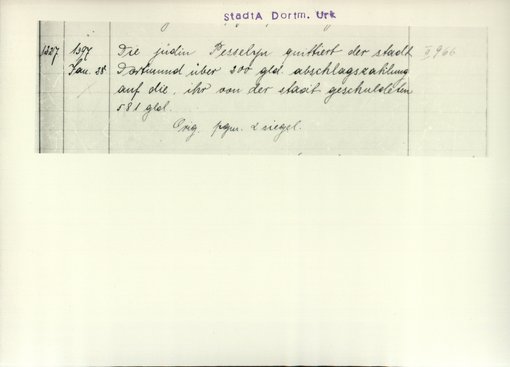 StadtA Dortm. Urk
1327 1397 Die jüdin Resselyn quittiert der stadt II 966
Jan. 25 Dortmund über 200 gld. abschlagszahlung
auf die, ihr von der stadt geschuldeten
581 gld.
Orig. pgm. 2 siegel.